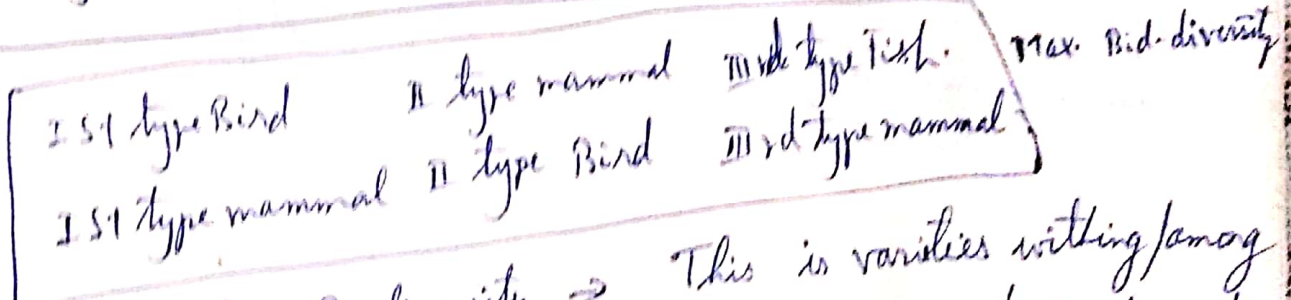 Ist type Bird II type mammal IIIrd type Fish. Max. Bid-diversity
Ist type mammal II type Bird IIIrd type mammal
⇒ This is varities withing/among